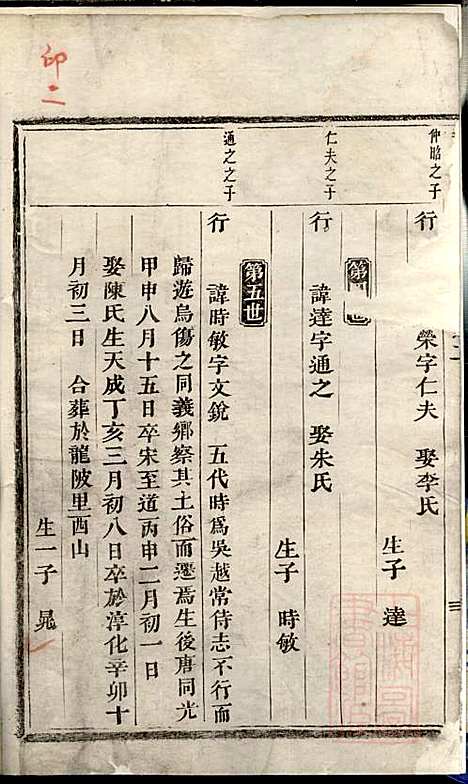 仲昭之子
行
榮字仁夫 娶李氏
生子 達
第
世
仁夫之子
行 諱達字通之 娶朱氏
生子 時敏
第五世
通之之子
行 諱時敏字文銳 五代時爲吳越常侍志不行而
歸遊烏傷之同義鄉察其土俗而遷焉生後唐同光
甲申八月十五日卒宋至道丙申二月初一日
娶陳氏生天成丁亥三月初八日卒於淳化辛卯十
月初三日 合葬於龍陂里西山
生一子 晃